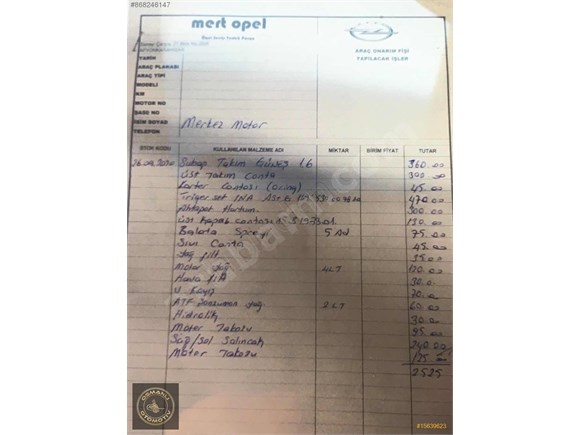 #868246147
mert opel
Opel Servis Yedek Parça
ARAÇ ONARIM FİŞİ
YAPILACAK İŞLER
TARİH
ARAÇ PLAKASI
ARAÇ TİPİ
MODELİ
KM
MOTOR NO
ŞASİ NO
İSİM SOYAD
TELEFON
Merkez Motor
STOK KODU KULLANILAN MALZEME ADI MİKTAR BİRİM FİYAT TUTAR
Subap Takım 1.6 360.00
Üst Takım Conta 300.00
Karter Contası (oring) 45.00
Triger set INA 470.00
Ahtapot Hortum 300.00
Üst Kapak contası 130.00
Balata Sprey 5 Ad 75.00
Conta 45.00
Yağ filt 35.00
Motor Yağ 4LT
Hava filt 30.0
V Kayış
ATF Yağ 2LT 60.00
Hidrolik 30.00
Motor Takozu 95.00
Sağ/Sol Salıncak 240.00
Motor Takozu
2525
OSMANLI
OTOMOTİV
#15639823